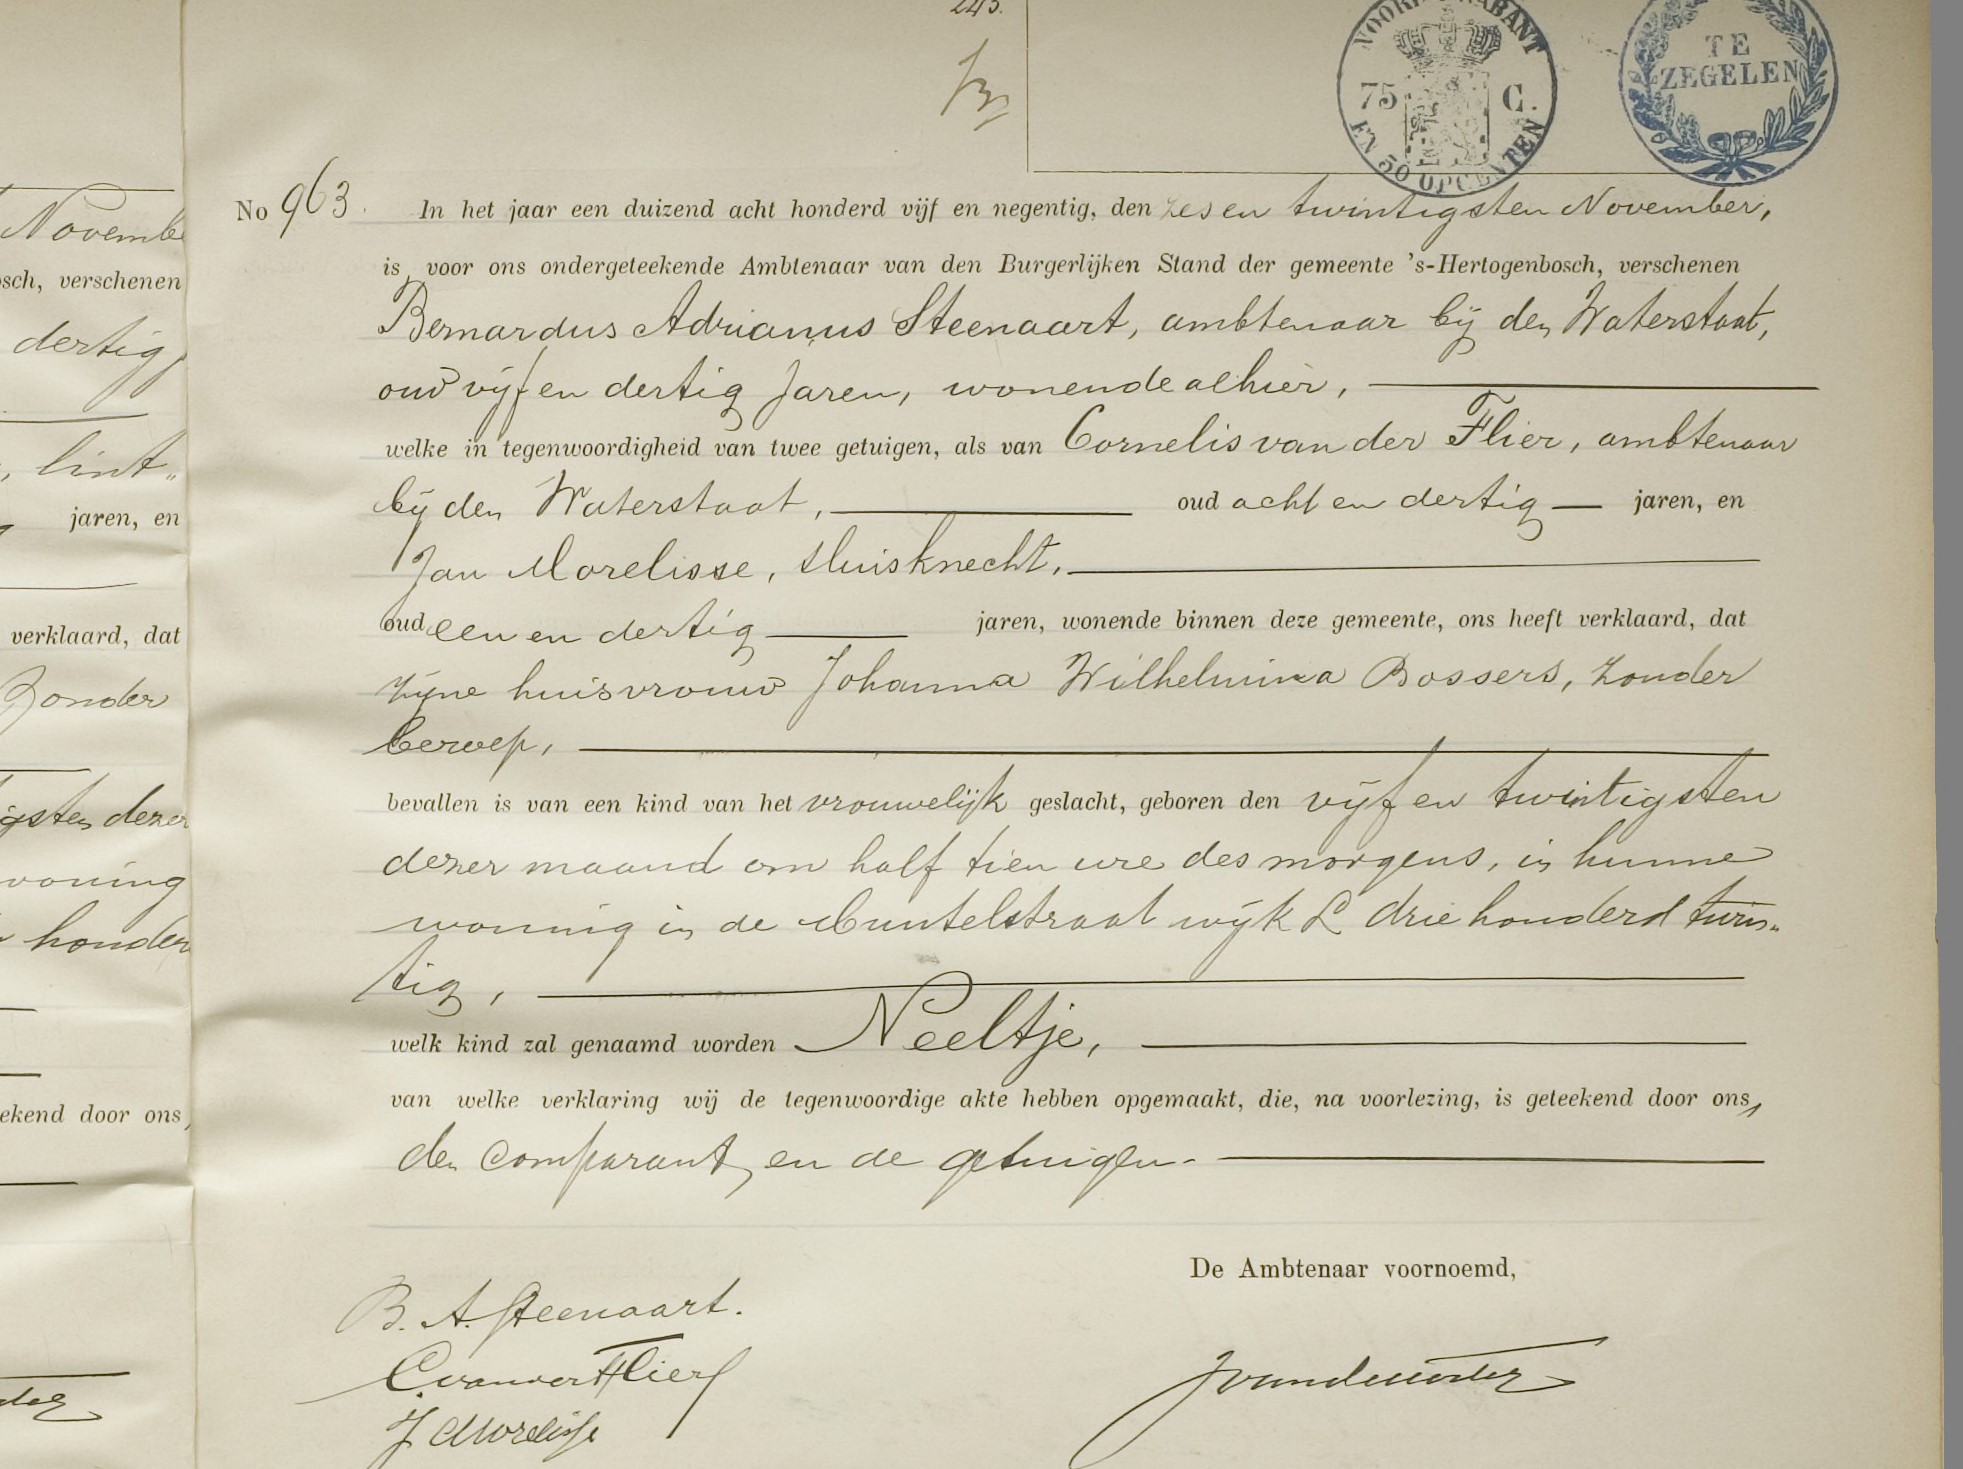 243.
NOORD-BRABANT
75 C.
EN 50 OPCENTEN
TE
ZEGELEN
No 963. In het jaar een duizend acht honderd vijf en negentig, den zes en twintigsten November,
is, voor ons ondergeteekende Ambtenaar van den Burgerlijken Stand der gemeente 's-Hertogenbosch, verschenen
Bernardus Adrianus Steenaart, ambtenaar bij den Waterstaat,
oud vijf en dertig jaren, wonende alhier,
welke in tegenwoordigheid van twee getuigen, als van Cornelis van der Flier, ambtenaar
bij den Waterstaat, oud acht en dertig jaren, en
Jan Morelisse, sluisknecht,
oud een en dertig jaren, wonende binnen deze gemeente, ons heeft verklaard, dat
zijne huisvrouw Johanna Wilhelmina Bossers, zonder
beroep,
bevallen is van een kind van het vrouwelijk geslacht, geboren den vijf en twintigsten
dezer maand om half tien ure des morgens, in hunne
woning in de Muntelstraat wijk L drie honderd twin„
tig,
welk kind zal genaamd worden Neeltje,
van welke verklaring wij de tegenwoordige akte hebben opgemaakt, die, na voorlezing, is geteekend door ons,
den comparant, en de getuigen.
De Ambtenaar voornoemd,
B. A. Steenaart.
C. van der Flier
J Morelisse
Novembe
osch, verschenen
dertig,
, lint„
jaren, en
verklaard, dat
Zonder
igsten dezer
woning
honder
ekend door ons,